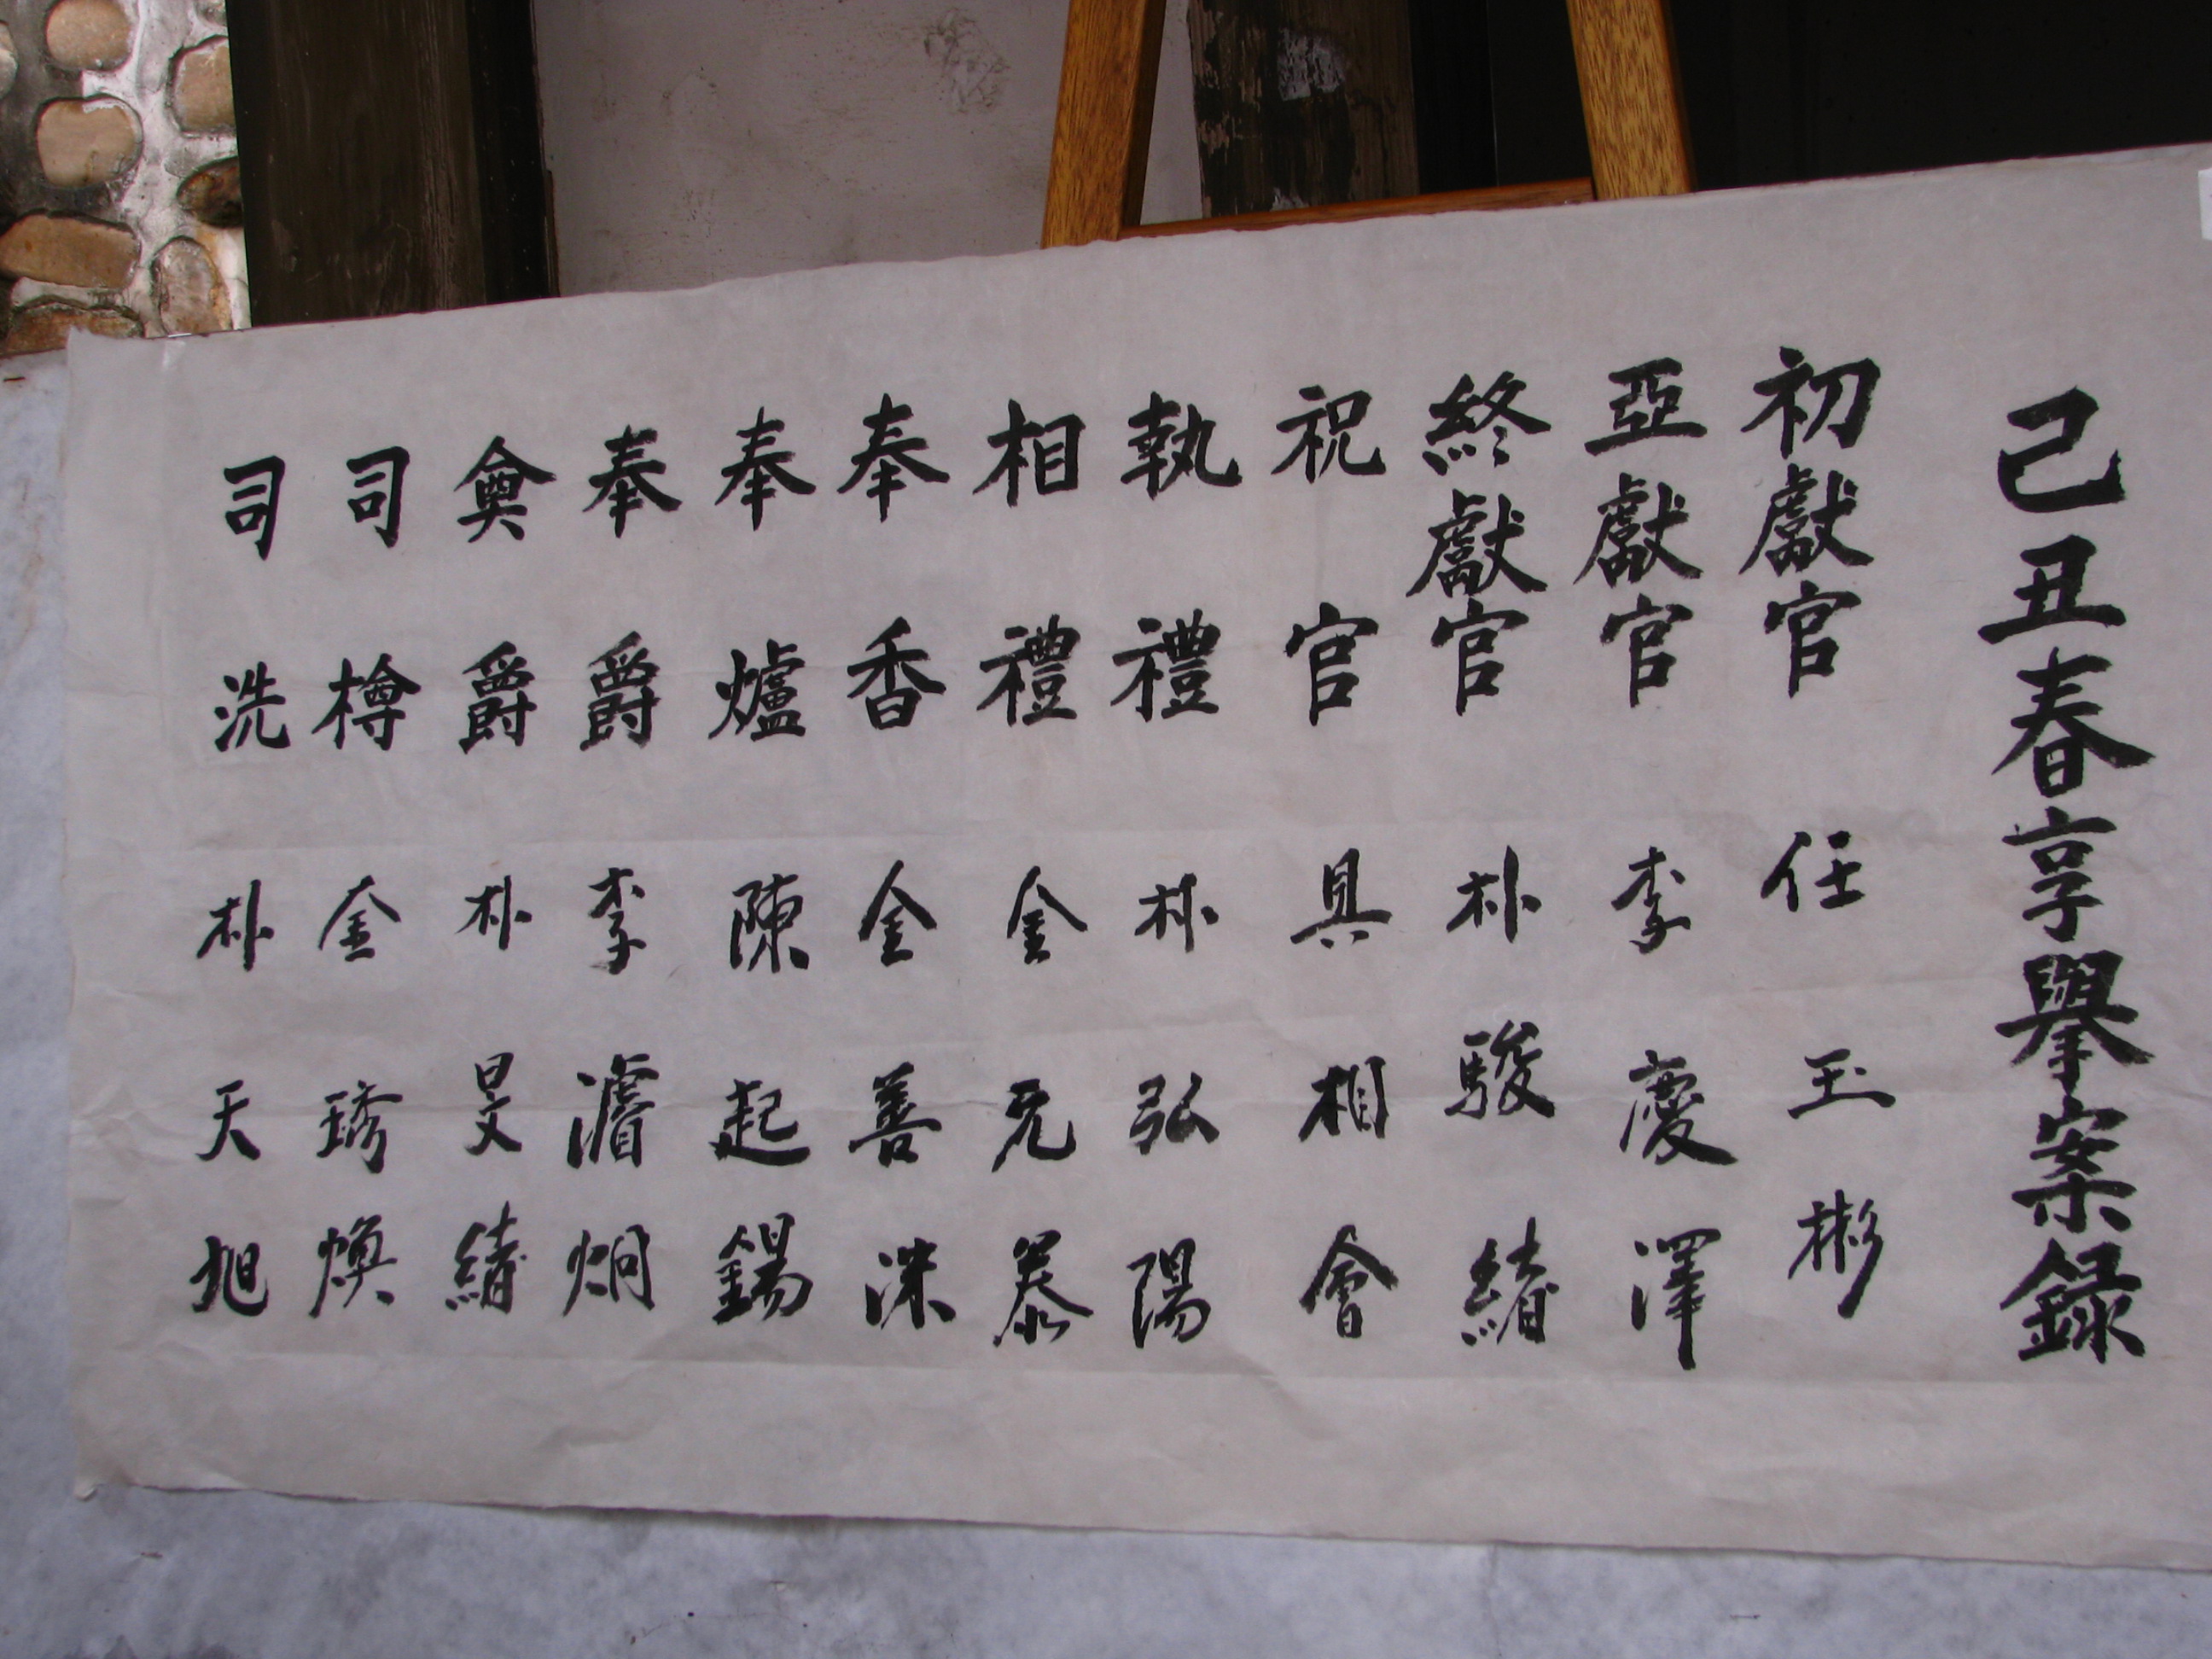 己丑春享擧案錄
初獻官 任玉彬
亞獻官 李慶澤
終獻官 朴駿緖
祝官 具相會
執禮 朴弘陽
相禮 金元泰
奉香 金善洙
奉爐 陳起錫
奉爵 李濬炯
奠爵 朴旻緖
司樽 金琇煥
司洗 朴天旭